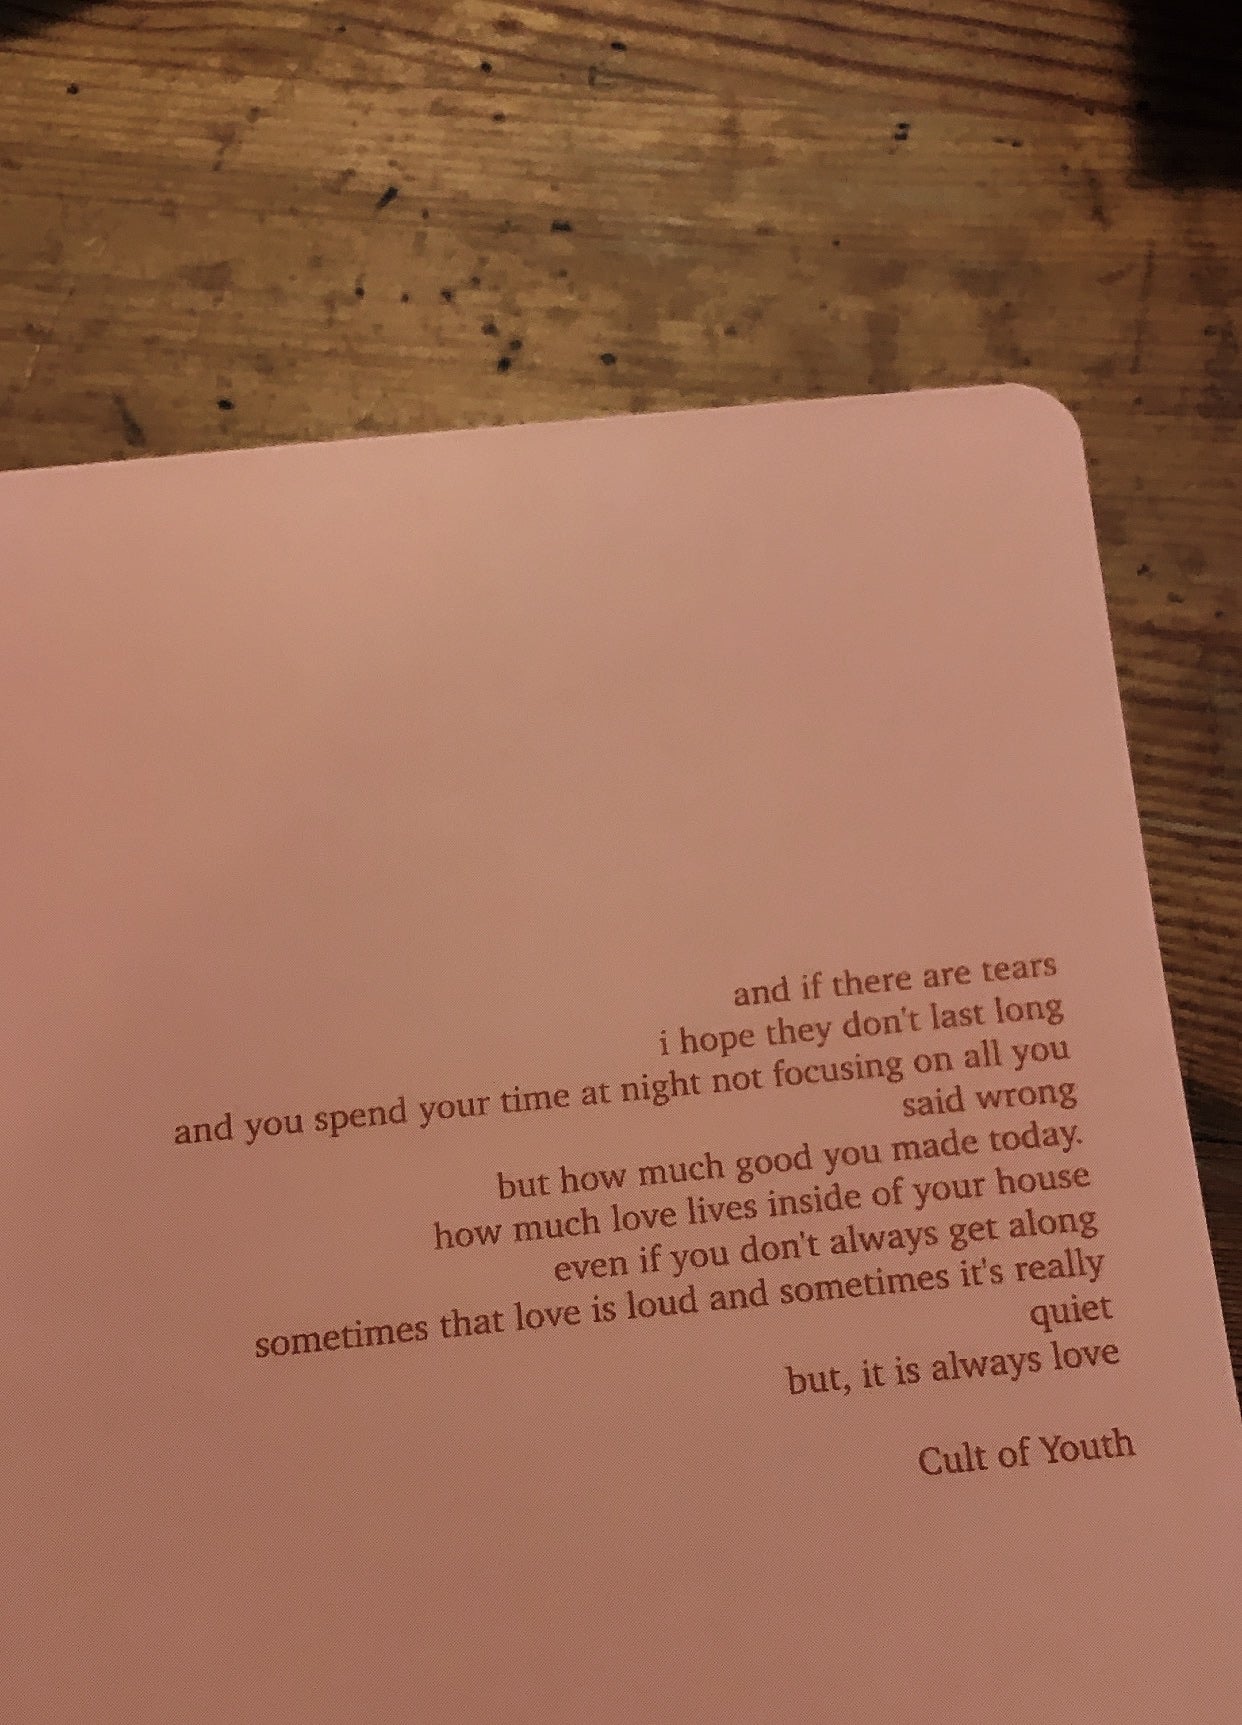 and if there are tears
i hope they don't last long
and you spend your time at night not focusing on all you
said wrong
but how much good you made today.
how much love lives inside of your house
even if you don't always get along
sometimes that love is loud and sometimes it's really
quiet
but, it is always love
Cult of Youth